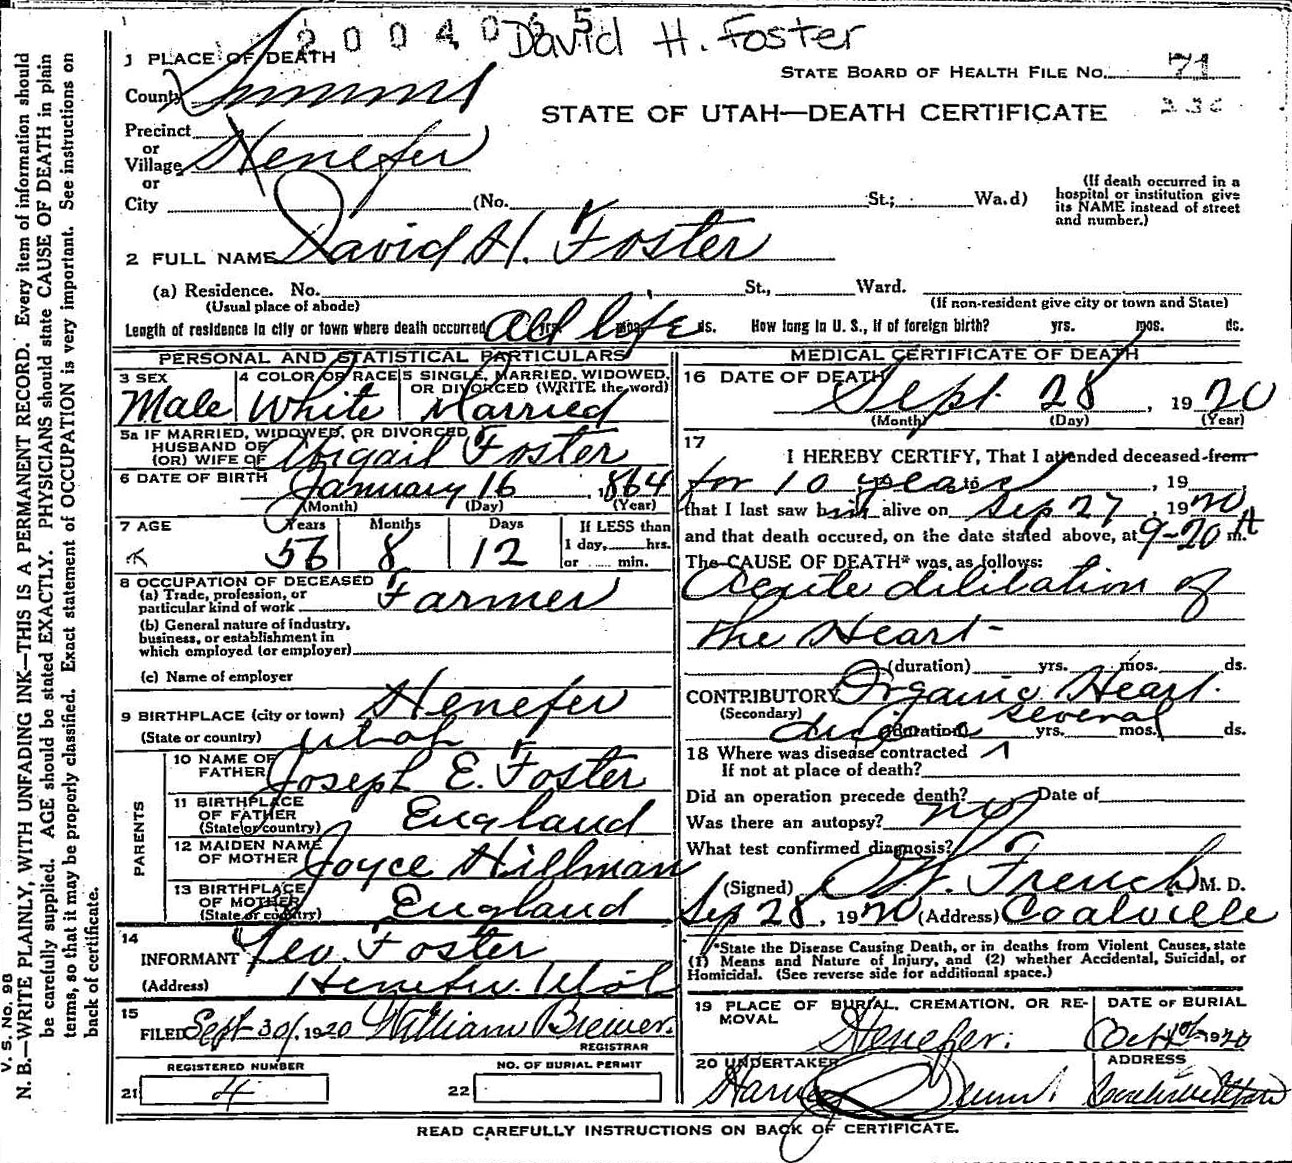 2004065 David H. Foster
1 PLACE OF DEATH
STATE BOARD OF HEALTH FILE No. 71
County Summit
236
STATE OF UTAH—DEATH CERTIFICATE
Precinct
or
Village Henefer
or
City (No. St.; Wa.d)
(If death occurred in a hospital or institution give its NAME instead of street and number.)
2 FULL NAME David H. Foster
(a) Residence. No. St., Ward.
(Usual place of abode) (If non-resident give city or town and State)
Length of residence in city or town where death occurred All life yrs. mos. ds. How long in U. S., if of foreign birth? yrs. mos. ds.
PERSONAL AND STATISTICAL PARTICULARS
3 SEX Male
4 COLOR OR RACE White
5 SINGLE, MARRIED, WIDOWED, OR DIVORCED (WRITE the word) Married
5a IF MARRIED, WIDOWED, OR DIVORCED
HUSBAND OF
(OR) WIFE OF Abigail Foster
6 DATE OF BIRTH January 16, 1864
(Month) (Day) (Year)
7 AGE Years Months Days If LESS than
56 8 12 1 day, hrs.
or min.
8 OCCUPATION OF DECEASED
(a) Trade, profession, or
particular kind of work Farmer
(b) General nature of industry,
business, or establishment in
which employed (or employer)
(c) Name of employer
9 BIRTHPLACE (city or town) Henefer
(State or country) Utah
PARENTS
10 NAME OF FATHER Joseph E. Foster
11 BIRTHPLACE OF FATHER (State or country) England
12 MAIDEN NAME OF MOTHER Joyce Hillman
13 BIRTHPLACE OF MOTHER (State or country) England
14
INFORMANT Geo. Foster
(Address) Henefer Utah
15
FILED Sept-30, 1920 William Brewer.
REGISTRAR
REGISTERED NUMBER NO. OF BURIAL PERMIT
21 4 22
MEDICAL CERTIFICATE OF DEATH
16 DATE OF DEATH Sept. 28, 1920
(Month) (Day) (Year)
17
I HEREBY CERTIFY, That I attended deceased from
for 10 years to , 19
that I last saw him alive on Sep 27, 1920
and that death occured, on the date stated above, at 9-20 A m.
The CAUSE OF DEATH* was as follows:
Acute dilitation of
the Heart-
(duration) yrs. mos. ds.
CONTRIBUTORY Organic Heart.
(Secondary)
(duration) several yrs. mos. ds.
18 Where was disease contracted
If not at place of death?
Did an operation precede death? no Date of
Was there an autopsy?
What test confirmed diagnosis?
(Signed) French M. D.
Sep 28, 1920 (Address) Coalville
*State the Disease Causing Death, or in deaths from Violent Causes, state
(1) Means and Nature of Injury, and (2) whether Accidental, Suicidal, or
Homicidal. (See reverse side for additional space.)
19 PLACE OF BURIAL, CREMATION, OR REMOVAL DATE OF BURIAL
Henefer. Oct 1920
20 UNDERTAKER ADDRESS
READ CAREFULLY INSTRUCTIONS ON BACK OF CERTIFICATE.
V. S. No. 98
N. B.—WRITE PLAINLY, WITH UNFADING INK—THIS IS A PERMANENT RECORD. Every item of information should
be carefully supplied. AGE should be stated EXACTLY. PHYSICIANS should state CAUSE OF DEATH in plain
terms, so that it may be properly classified. Exact statement of OCCUPATION is very important. See instructions on
back of certificate.